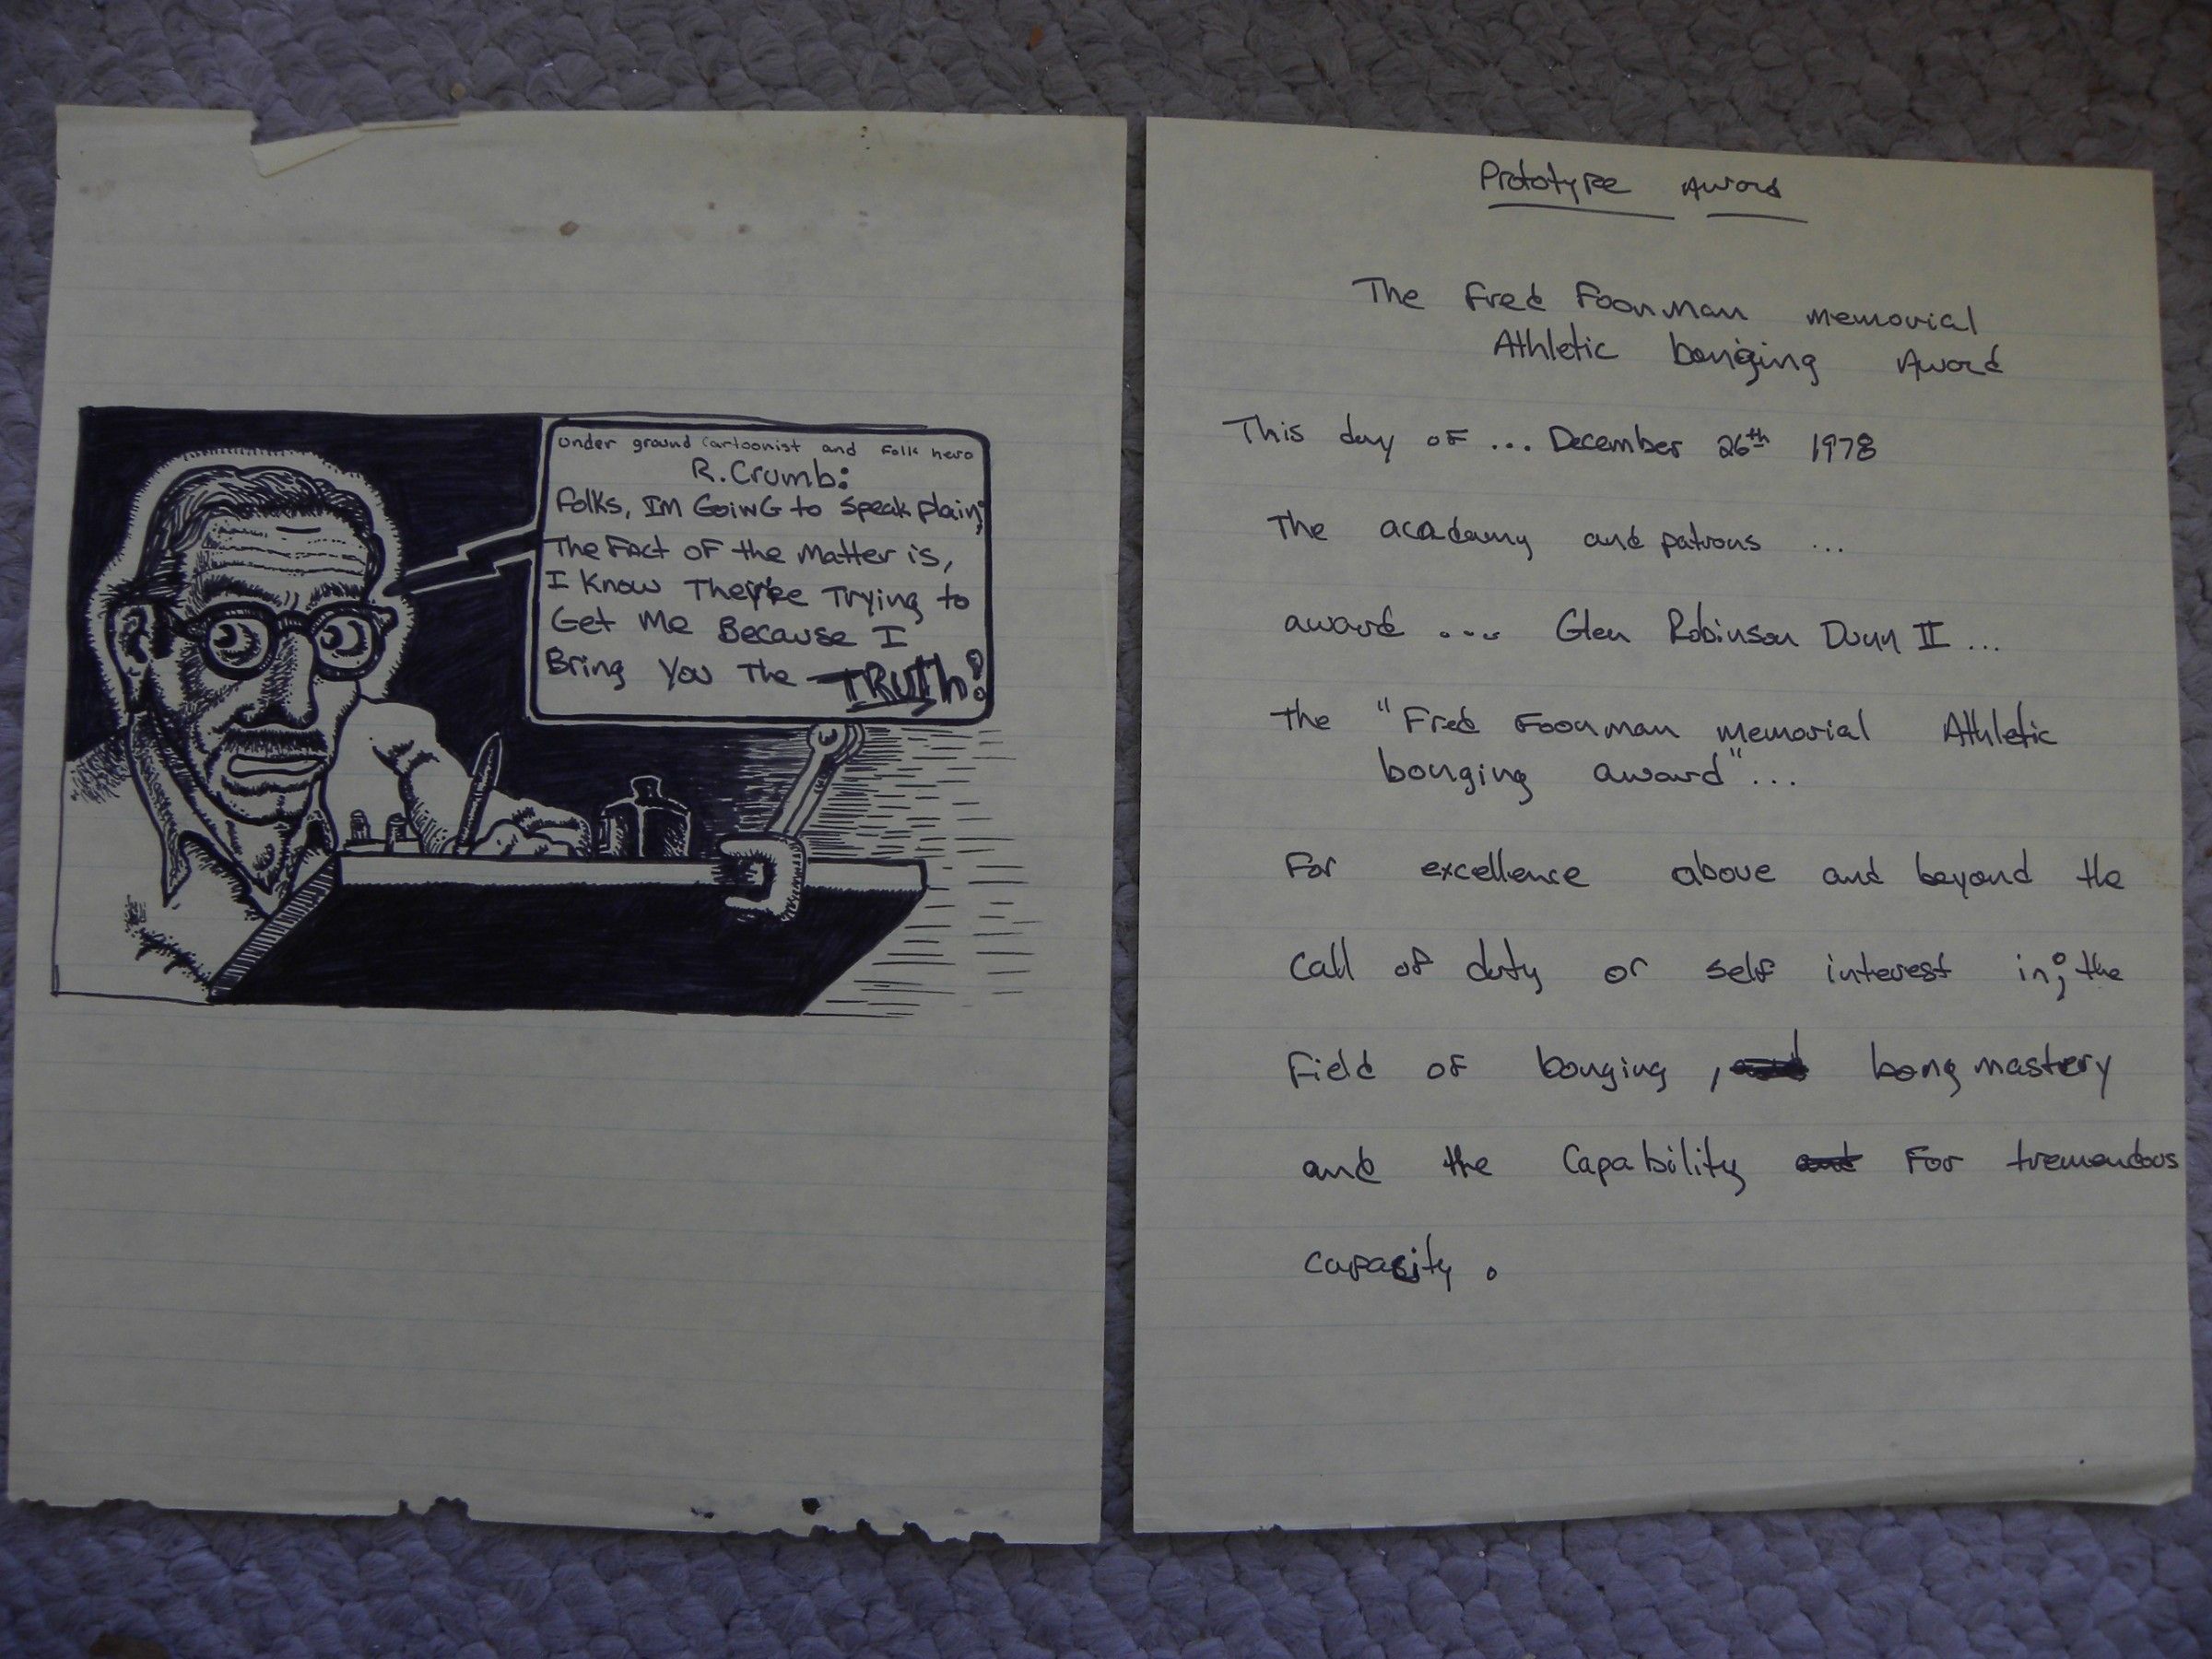 under ground cartoonist and folk hero
R. Crumb:
Folks, Im Going to speak plain;
The Fact of the Matter is,
I Know They're Trying to
Get Me Because I
Bring You The TRUTH!
Prototype Award
The Fred Foonman memorial
Athletic bonging Award
This day of ... December 26th 1978
The acadamy and patrons ...
award .... Glen Robinson Dunn II ...
The "Fred Foonman memorial Athletic
bonging award" ...
For excellence above and beyond the
call of duty or self interest in; the
Field of bonging, and bong mastery
and the Capability and For tremendous
capacity.